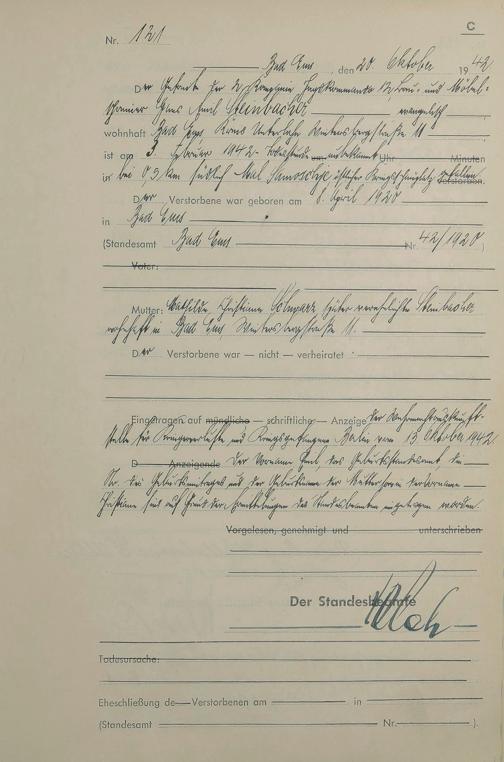 C
Nr. 121
Bad Ems, den 20. Oktober 1942
Der Gefreite der 2. Kompanie Jagdkommando 12, Bau- und Möbel-
schreiner Steinbacher evangelisch
wohnhaft Bad Ems Kreis Unterlahn Wintersbergstraße 11
ist am 3. Februar 1942 Todesstunde unbekannt Uhr Minuten
in bei 0,5 km südlich östlicher Kriegsschauplatz gefallen verstorben.
Der Verstorbene war geboren am 8. April 1920
in Bad Ems
(Standesamt Bad Ems Nr. 42/1920)
Vater:
Mutter: Mathilde, Christiane später verehelichte Steinbacher
wohnhaft in Bad Ems, Wintersbergstraße 11.
Der Verstorbene war — nicht — verheiratet
Eingetragen auf mündliche — schriftliche — Anzeige der Wehrmachtauskunft-
stelle für Kriegerverluste und Kriegsgefangene Berlin vom 13. Oktober 1942
D Anzeigende Der Vorname das Geburtsstandesamt, die
Nr. des Geburtseintrages und der Geburtsname der Mutter Vorname
Christiane sind auf Grund der Ermittlungen des Standesbeamten eingetragen worden.
Vorgelesen, genehmigt und unterschrieben
Der Standesbeamte
Todesursache:
Eheschließung de Verstorbenen am in
(Standesamt Nr. ).